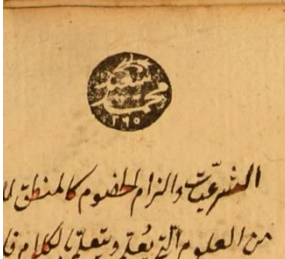 محمد
٢٦٠
الشرعيات والزام الخصوم كالمنطق للـ
من العلوم التي يُعلم ويتعلم بالكلام فا